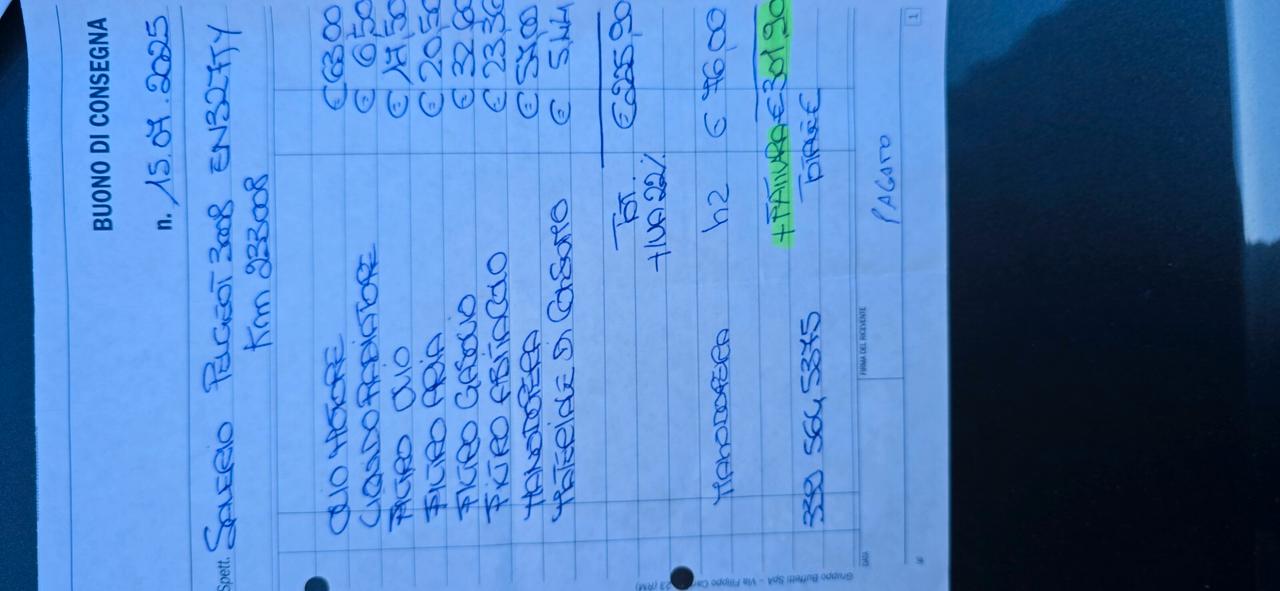 BUONO DI CONSEGNA
n. 15.07.2025
Spett. SAVERIO PEUGEOT 3008 EN327TY
Km 233008
OLIO MOTORE € 63,00
LIQUIDO RADIATORE € 6,50
FILTRO OLIO € 17,50
FILTRO ARIA € 20,50
FILTRO GASOLIO € 32,00
FILTRO ABITACOLO € 23,30
MANODOPERA € 57,00
MATERIALE DI CONSUMO €
TOT. € 225,90
+IVA 22%
MANODOPERA h2 € 76,00
+FATTURA € 301,90
TOTALE €
FIRMA DEL RICEVENTE
PAGATO
DATA
Gruppo Buffetti SpA - Via Filippo 23 (RM)
1